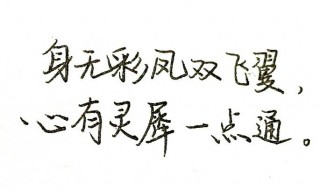 身无彩凤双飞翼，
心有灵犀一点通。